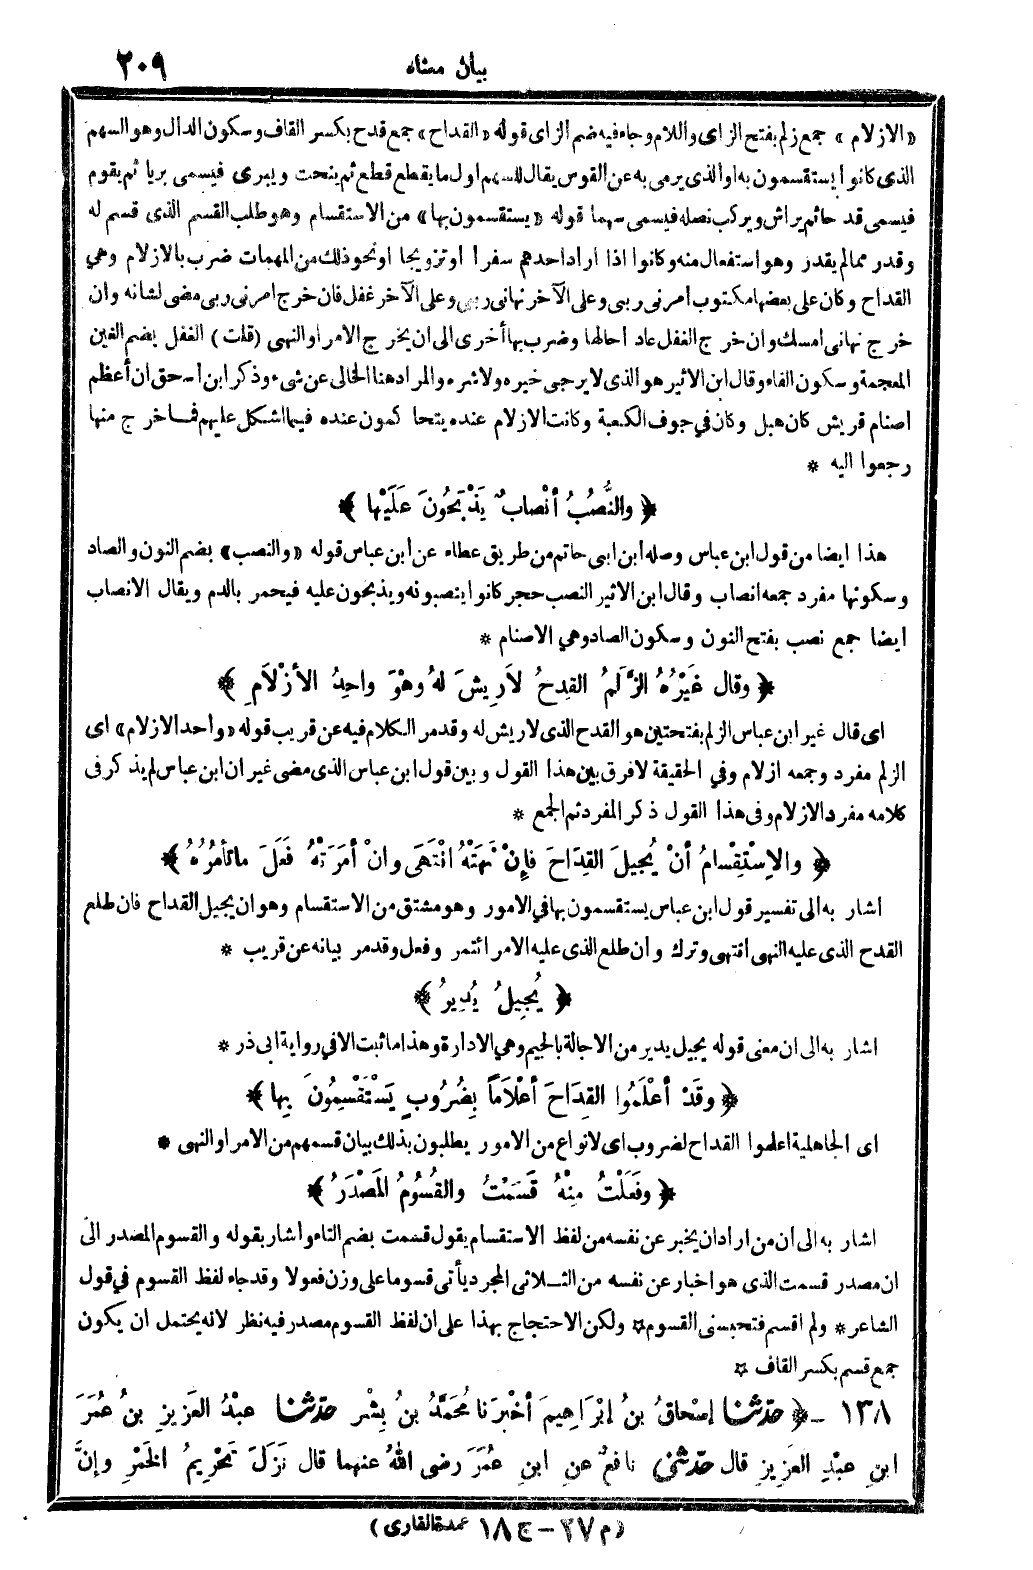 بيان معناه ٢٠٩
«الازلام» جمع زلم بفتح الزاى واللام وجاء فيه ضم الزاى قوله «القداح» جمع قدح بكسر القاف وسكون الدال وهو السهم
الذى كانوا يستقسمون به او الذى يرمى به عن القوس يقال للسهم اول ما يقطع قطع ثم ينحت ويبرى فيسمى بريا ثم يقوم
فيسمى قدحا ثم يراش ويركب نصله فيسمى سهما قوله «يستقسمون بها» من الاستقسام وهو طلب القسم الذى قسم له
وقدر مما لم يقدر وهو استفعال منه وكانوا اذا اراد احدهم سفرا او تزويجا او نحو ذلك من المهمات ضرب بالازلام وهي
القداح وكان على بعضها مكتوب امرنى ربى وعلى الآخر نهانى ربى وعلى الآخر غفل فان خرج امرنى ربى مضى لشانه وان
خرج نهانى امسك وان خرج الغفل عاد احالها وضرب بها أخرى الى ان يخرج الامر او النهى (قلت) الغفل بضم الغين
المعجمة وسكون الفاء وقال ابن الاثير هو الذى لا يرجى خيره ولا شره والمراد هنا الخالى عن شىء وذكر ابن اسحق ان أعظم
اصنام قريش كان هبل وكان في جوف الكعبة وكانت الازلام عنده يتحا كمون عنده فيما اشكل عليهم فما خرج منها
رجعوا اليه *
﴿ والنُّصُبُ أنْصابٌ يَذْبَحُونَ عَلَيْها ﴾
هذا ايضا من قول ابن عباس وصله ابن ابى حاتم من طريق عطاء عن ابن عباس قوله «والنصب» بضم النون والصاد
وسكونها مفرد جمعه انصاب وقال ابن الاثير النصب حجر كانوا ينصبونه ويذبحون عليه فيحمر بالدم ويقال الانصاب
ايضا جمع نصب بفتح النون وسكون الصاد وهي الاصنام *
﴿ وقال غَيْرُهُ الزَّلَمُ القِدحُ لاَ رِيشَ لهُ وهْوَ واحِدُ الأزْلاَمِ ﴾
اى قال غير ابن عباس الزلم بفتحتين هو القدح الذى لا ريش له وقد مر الكلام فيه عن قريب قوله «واحد الازلام» اى
الزلم مفرد وجمعه ازلام وفي الحقيقة لا فرق بين هذا القول وبين قول ابن عباس الذى مضى غير ان ابن عباس لم يذكر فى
كلامه مفرد الازلام وفى هذا القول ذكر المفرد ثم الجمع *
﴿ والاِسْتِقْسامُ أنْ يُجِيلَ القِدَاحَ فإِنْ نَهَتْهُ انْتَهَى وانْ أمَرَتْهُ فَعَلَ ما تأمُرُهُ ﴾
اشار به الى تفسير قول ابن عباس يستقسمون بها في الامور وهو مشتق من الاستقسام وهو ان يجيل القداح فان طلع
القدح الذى عليه النهى انتهى وترك وان طلع الذى عليه الامر ائتمر وفعل وقد مر بيانه عن قريب *
﴿ يُجِيلُ يُدِيرُ ﴾
اشار به الى ان معنى قوله يجيل يدير من الاجالة بالجيم وهي الادارة وهذا ما ثبت الا في رواية ابى ذر *
﴿ وقَدْ أعْلَمُوا القِدَاحَ أعْلاَماً بِضُرُوبٍ يَسْتَقْسِمُونَ بِها ﴾
اى الجاهلية اعلموا القداح لضروب اى لانواع من الامور يطلبون بذلك بيان قسمهم من الامر او النهى *
﴿ وفَعَلْتُ مِنْهُ قَسَمْتُ والقُسُومُ المَصْدَرُ ﴾
اشار به الى ان من اراد ان يخبر عن نفسه من لفظ الاستقسام يقول قسمت بضم التاء واشار بقوله والقسوم المصدر الى
ان مصدر قسمت الذى هو اخبار عن نفسه من الثلاثى المجرد يأتى قسوما على وزن فعولا وقد جاء لفظ القسوم في قول
الشاعر * ولم اقسم فتحبسنى القسوم * ولكن الاحتجاج بهذا على ان لفظ القسوم مصدر فيه نظر لانه يحتمل ان يكون
جمع قسم بكسر القاف *
١٣٨ ـ ﴿ حدّثنا إسْحاقُ بنُ إبْرَاهِيمَ أخْبَرَنا مُحَمَّدُ بنُ بِشْرٍ حدّثنا عبْدُ العَزِيزِ بنُ عُمَرَ
ابنِ عبْدِ العَزِيزِ قال حدّثني نافعٌ عنِ ابنِ عُمَرَ رضى اللهُ عنهما قال نَزَلَ تَحْرِيمُ الخَمْرِ وإنَّ
(م ٢٧ – ج ١٨ عمدة القارى)